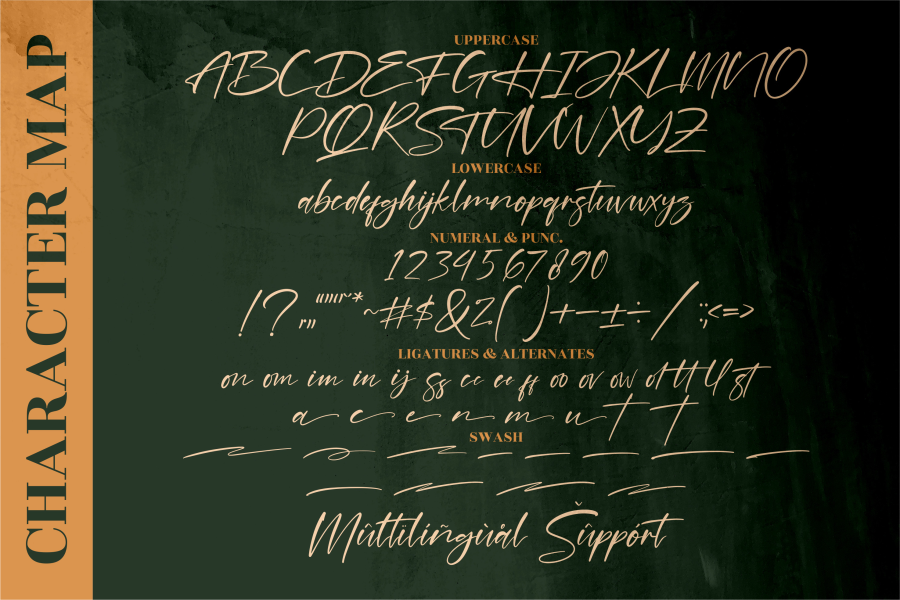 CHARACTER MAP
UPPERCASE
ABCDEFGHIJKLMNO
PQRSTUVWXYZ
LOWERCASE
abcdefghijklmnopqrstuvwxyz
NUMERAL & PUNC.
1234567890
!? ~#$&( )+−±÷/:;<=>
LIGATURES & ALTERNATES
on om im in ij gg cc ee ff oo ov ow ot tt ll st
a c e n m u t t
SWASH
Mûltilíñgùål Šûppórt